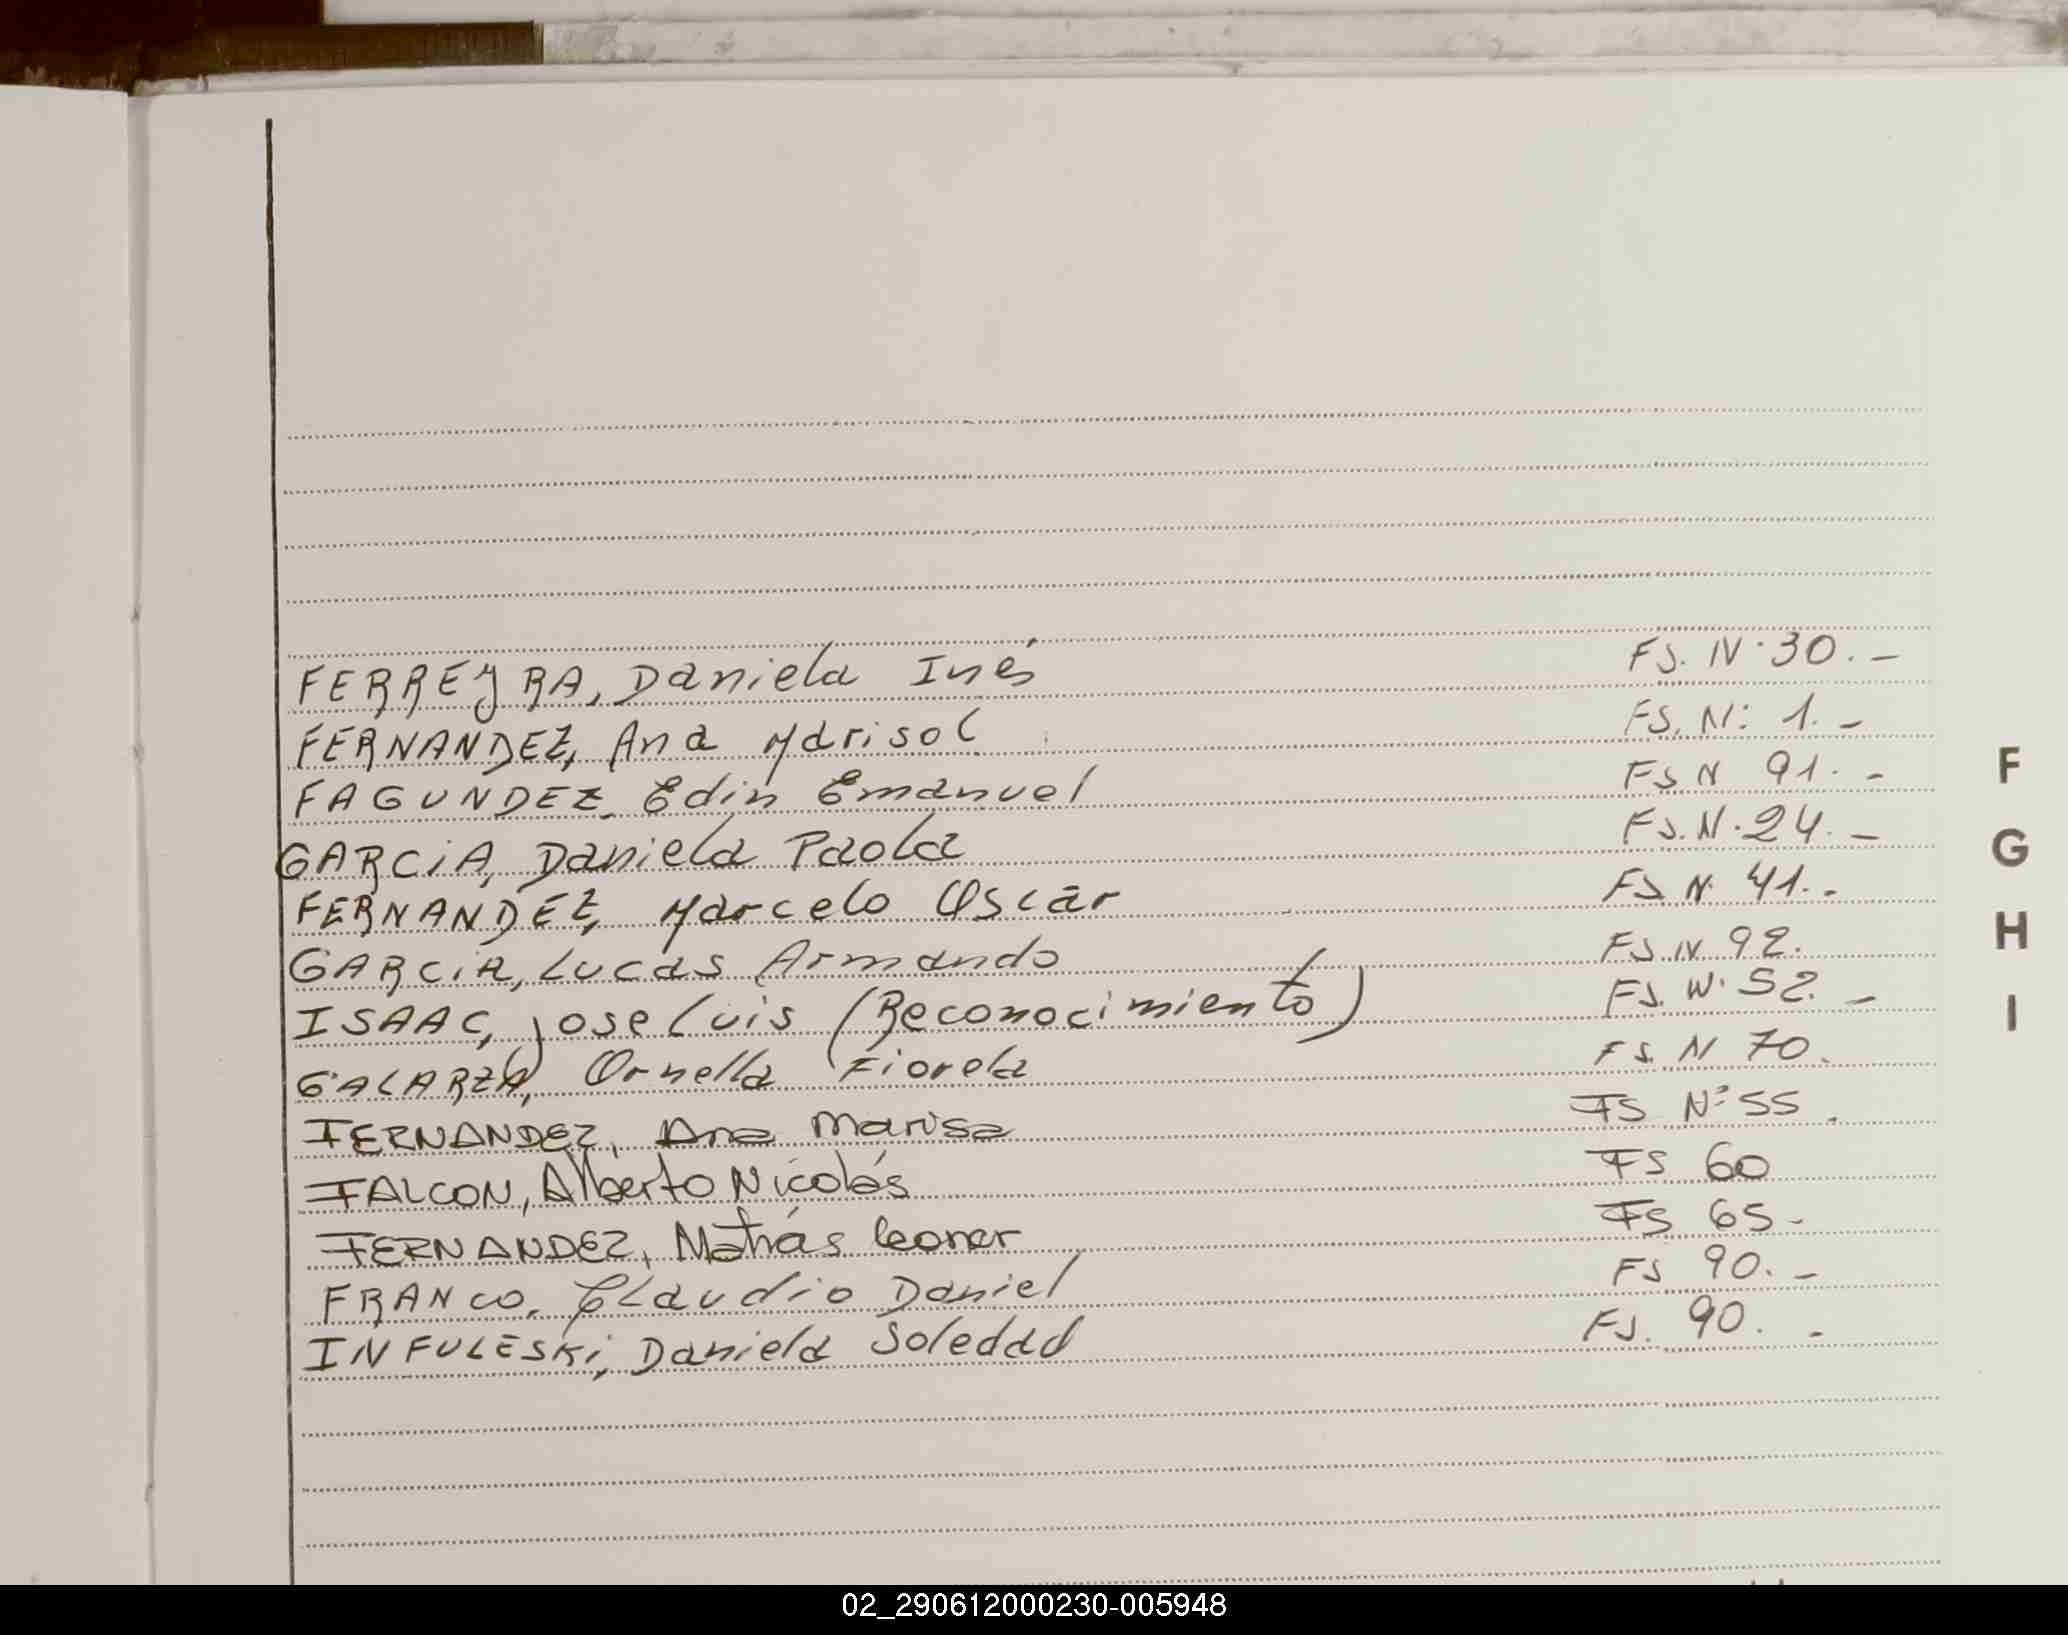 FERREYRA, Daniela Inés FS. N. 30. -
FERNANDEZ, Ana Marisol FS. N: 1. -
FAGUNDEZ Edin Emanuel FS N 91. -
GARCiA, Daniela Paola FS. N. 24. -
FERNANDEZ, Marcelo Oscar FS N. 41. -
GARCiA, Lucas Armando FS. N 92.
ISAAC, Jose Luis (Reconocimiento) FS. N. 52. -
GALARZA, Ornella Fiorela FS. N 70.
FERNANDEZ, Ana Marisa FS Nº 55.
FALCON, Alberto Nicolás FS 60
FERNANDEZ, Matías Leoner FS 65-
FRANCO, Claudio Daniel FS 90. -
INFULESKi, Daniela Soledad FS. 90. -
F
G
H
I
02_290612000230-005948